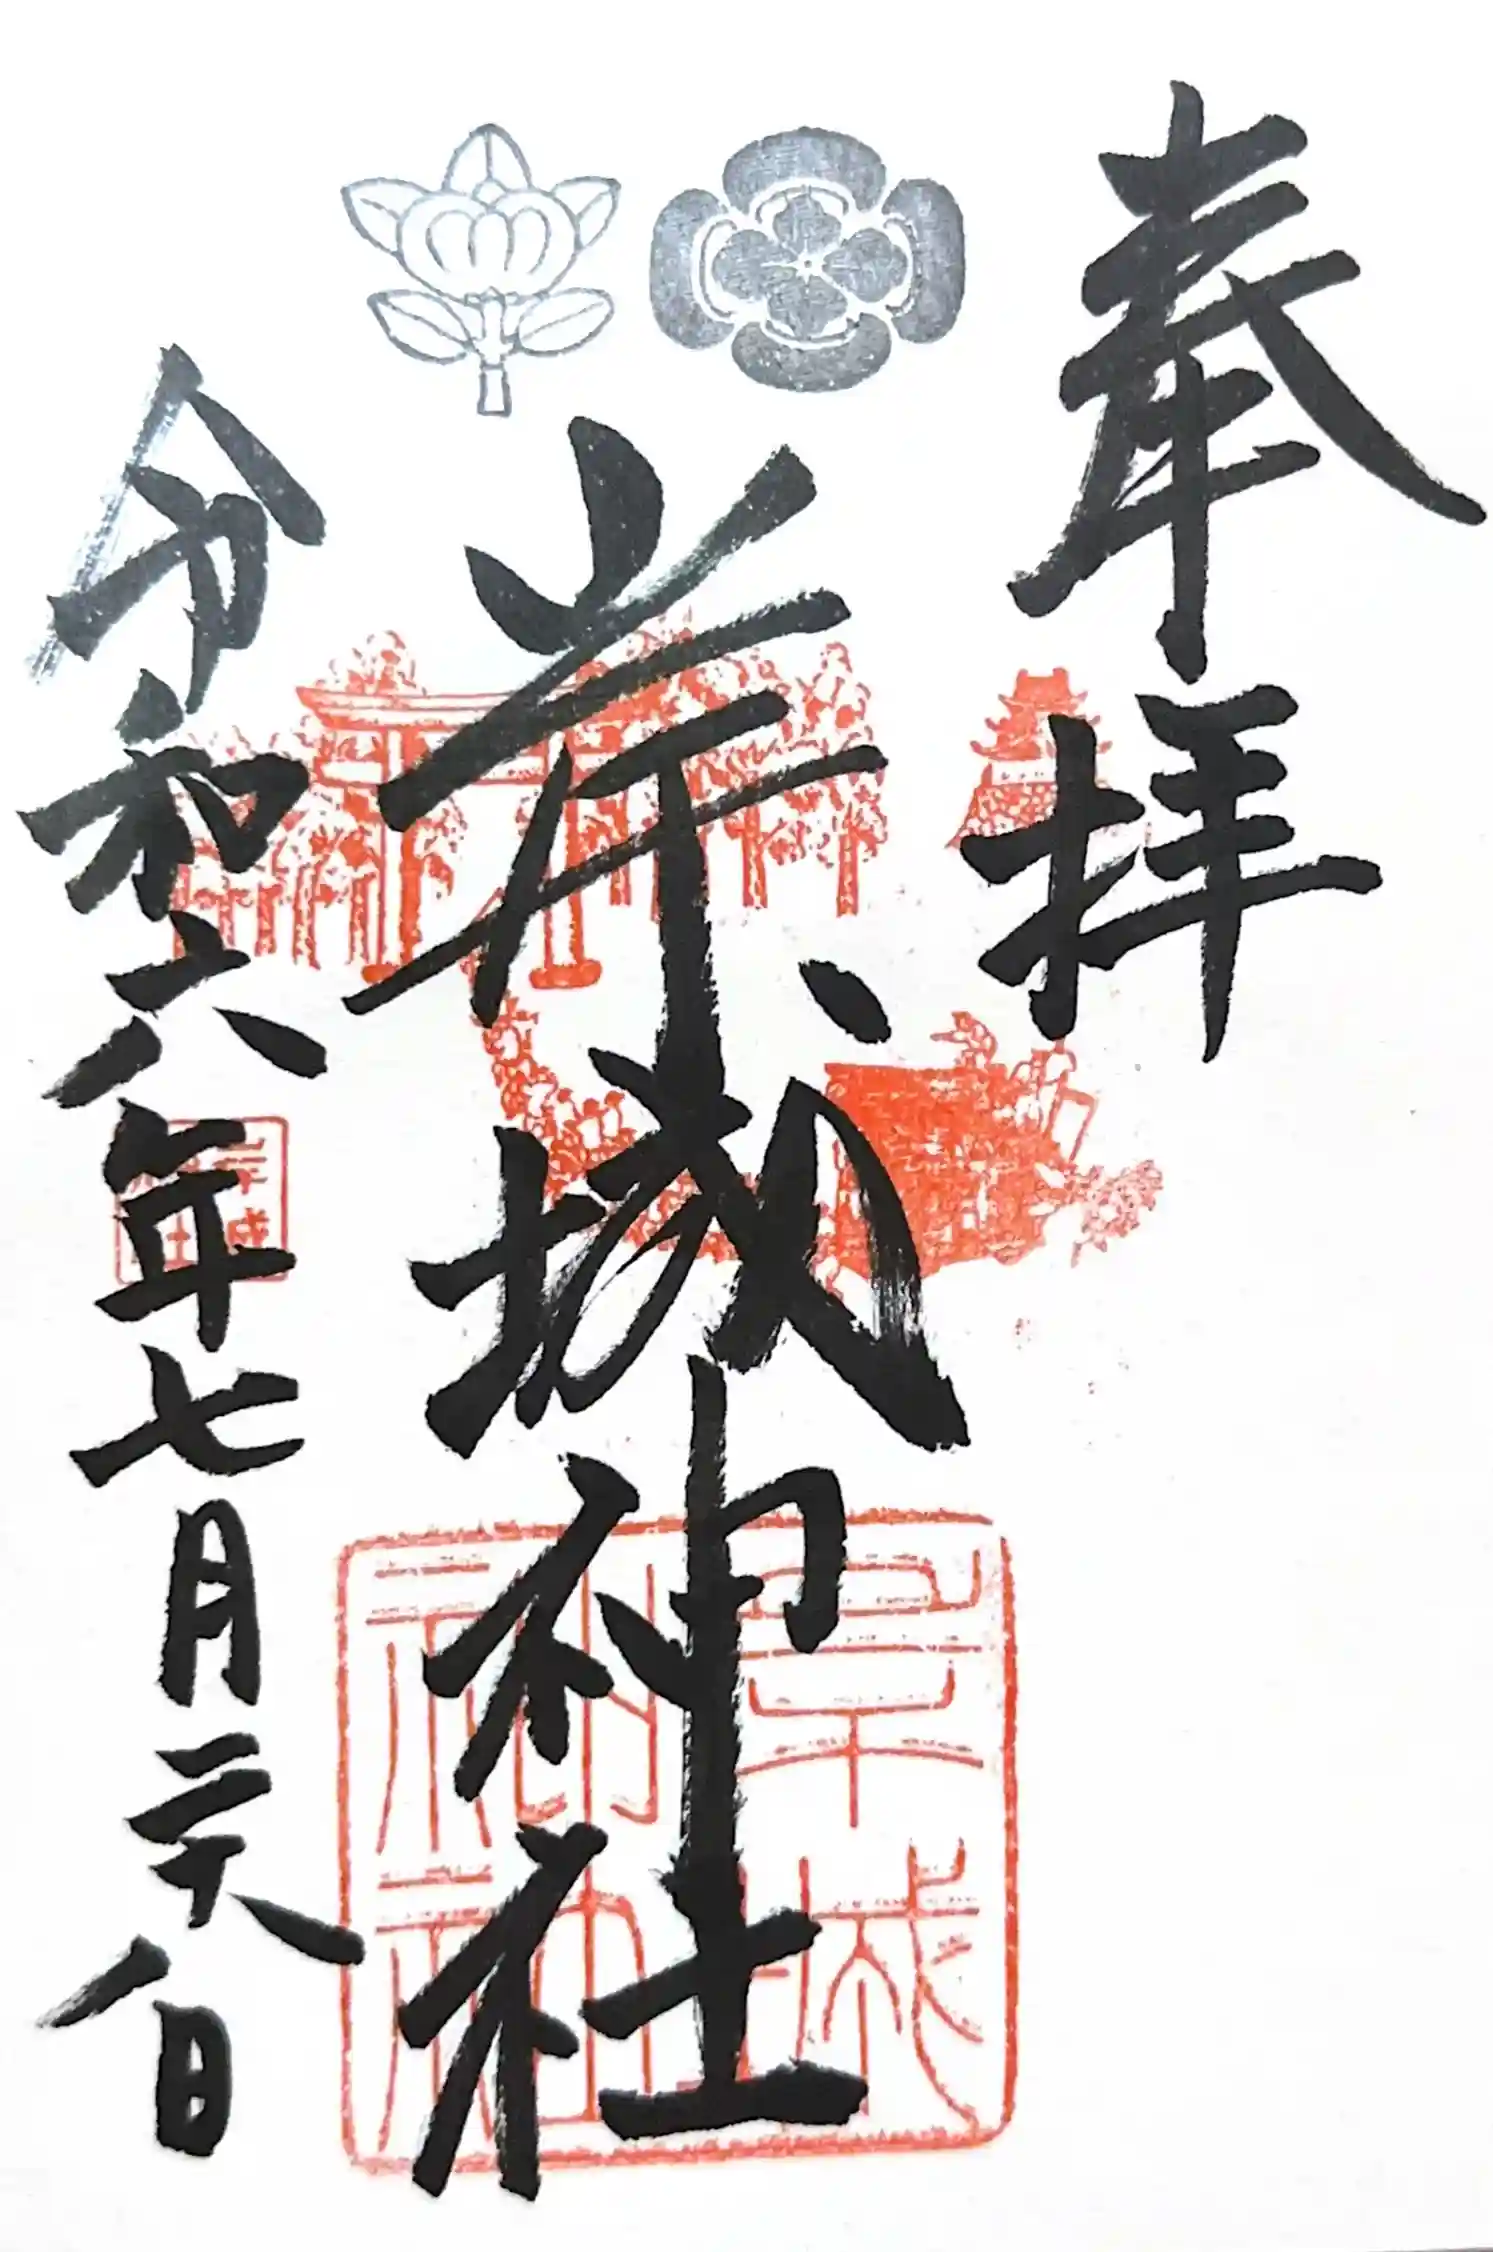 奉拝
岸城神社
令和六年七月二十八日
岸城神社